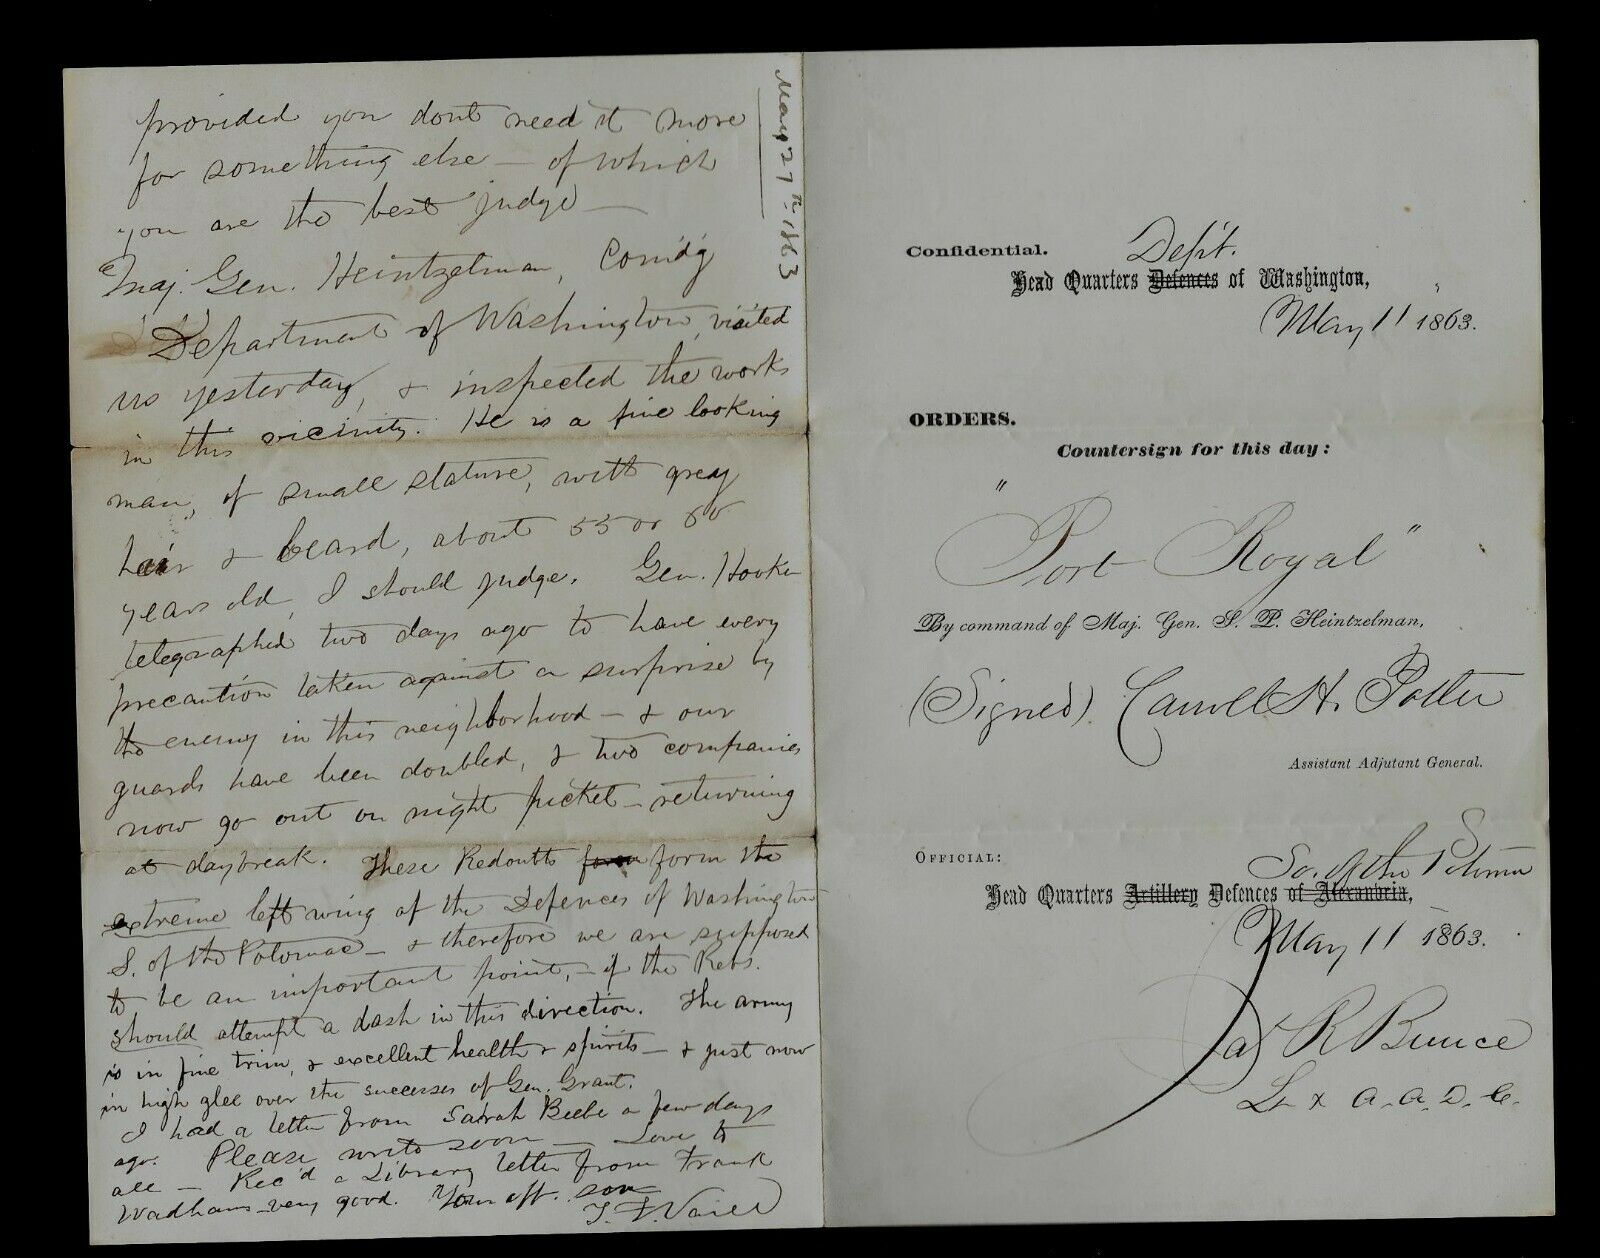 May 27th 1863
provided you dont need it more
for something else — of which
you are the best judge —
Maj. Gen. Heintzelman, Com'd'g
Department of Washington, visited
us yesterday, & inspected the works
in this vicinity. He is a fine looking
man, of small stature, with grey
hair & beard, about 55 or 60
years old, I should judge. Gen. Hooker
telegraphed two days ago to have every
precaution taken against a surprise by
the enemy in this neighborhood — & our
guards have been doubled, & two companies
now go out on night picket — returning
at daybreak. These Redoubts form form the
extreme left wing of the Defences of Washington
S. of the Potomac — & therefore we are supposed
to be an important point, — if the Rebs.
should attempt a dash in this direction. The army
is in fine trim, & excellent health & spirits — & just now
in high glee over the successes of Gen. Grant.
I had a letter from Sarah Beebe a few days
ago. Please write soon — Love to
all — Rec'd a Library letter from Frank
Wadhams very good. Your aff. son
T. F. Vaill
Confidential.
Dep't.
Head Quarters Defences of Washington,
May 11" 1863.
ORDERS.
Countersign for this day:
"Port Royal"
By command of Maj. Gen. S. P. Heintzelman,
(Signed) Carroll H. Potter
Assistant Adjutant General.
OFFICIAL:
So. of the Potomac
Head Quarters Artillery Defences of Alexandria,
May 11 1863.
Jas R Bunce
Lt & A. A. D. C.